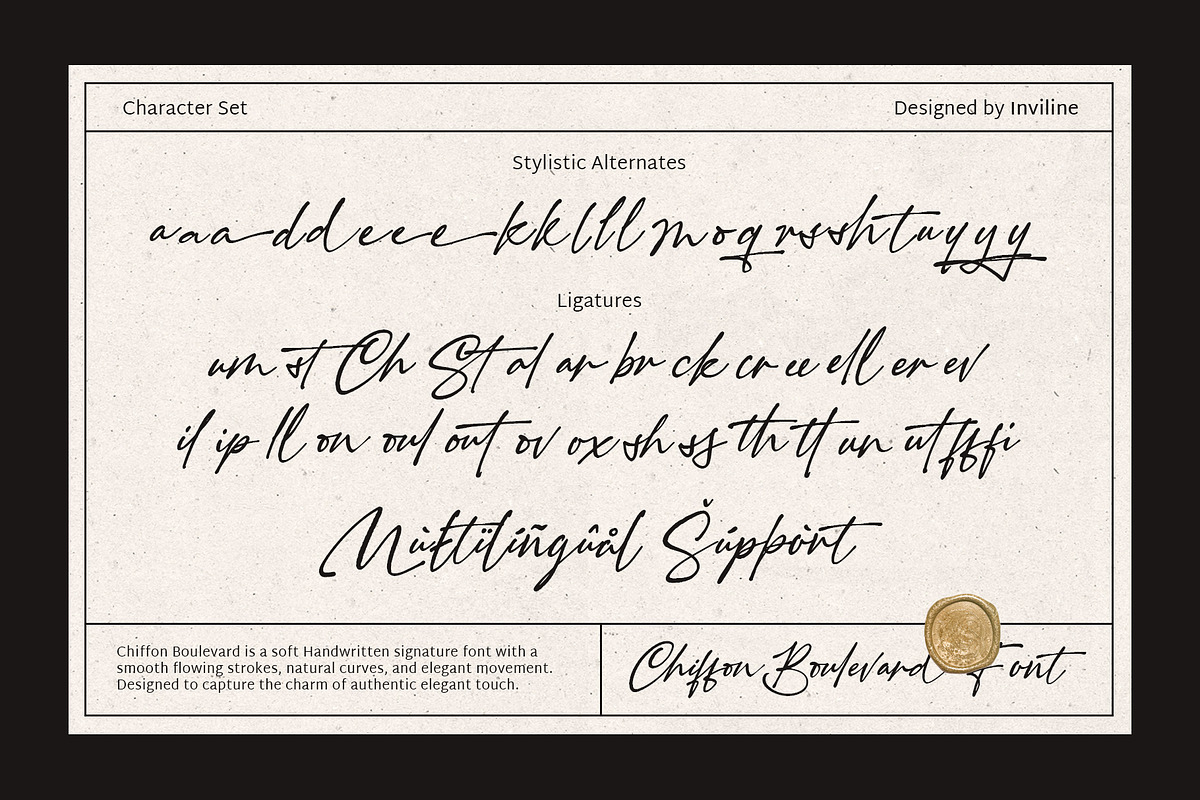 Character Set
Designed by Inviline
Stylistic Alternates
a a a d d e e e k k l l l m o q r s s h t u y y y
Ligatures
um st Ch St al ar br ck cr ee ell er ev
il ip ll on oul out ov ox sh ss th tt un ut ff fi
Mùłtïlíñgûål Šúppòrt
Chiffon Boulevard is a soft Handwritten signature font with a
smooth flowing strokes, natural curves, and elegant movement.
Designed to capture the charm of authentic elegant touch.
Chiffon Boulevard Font